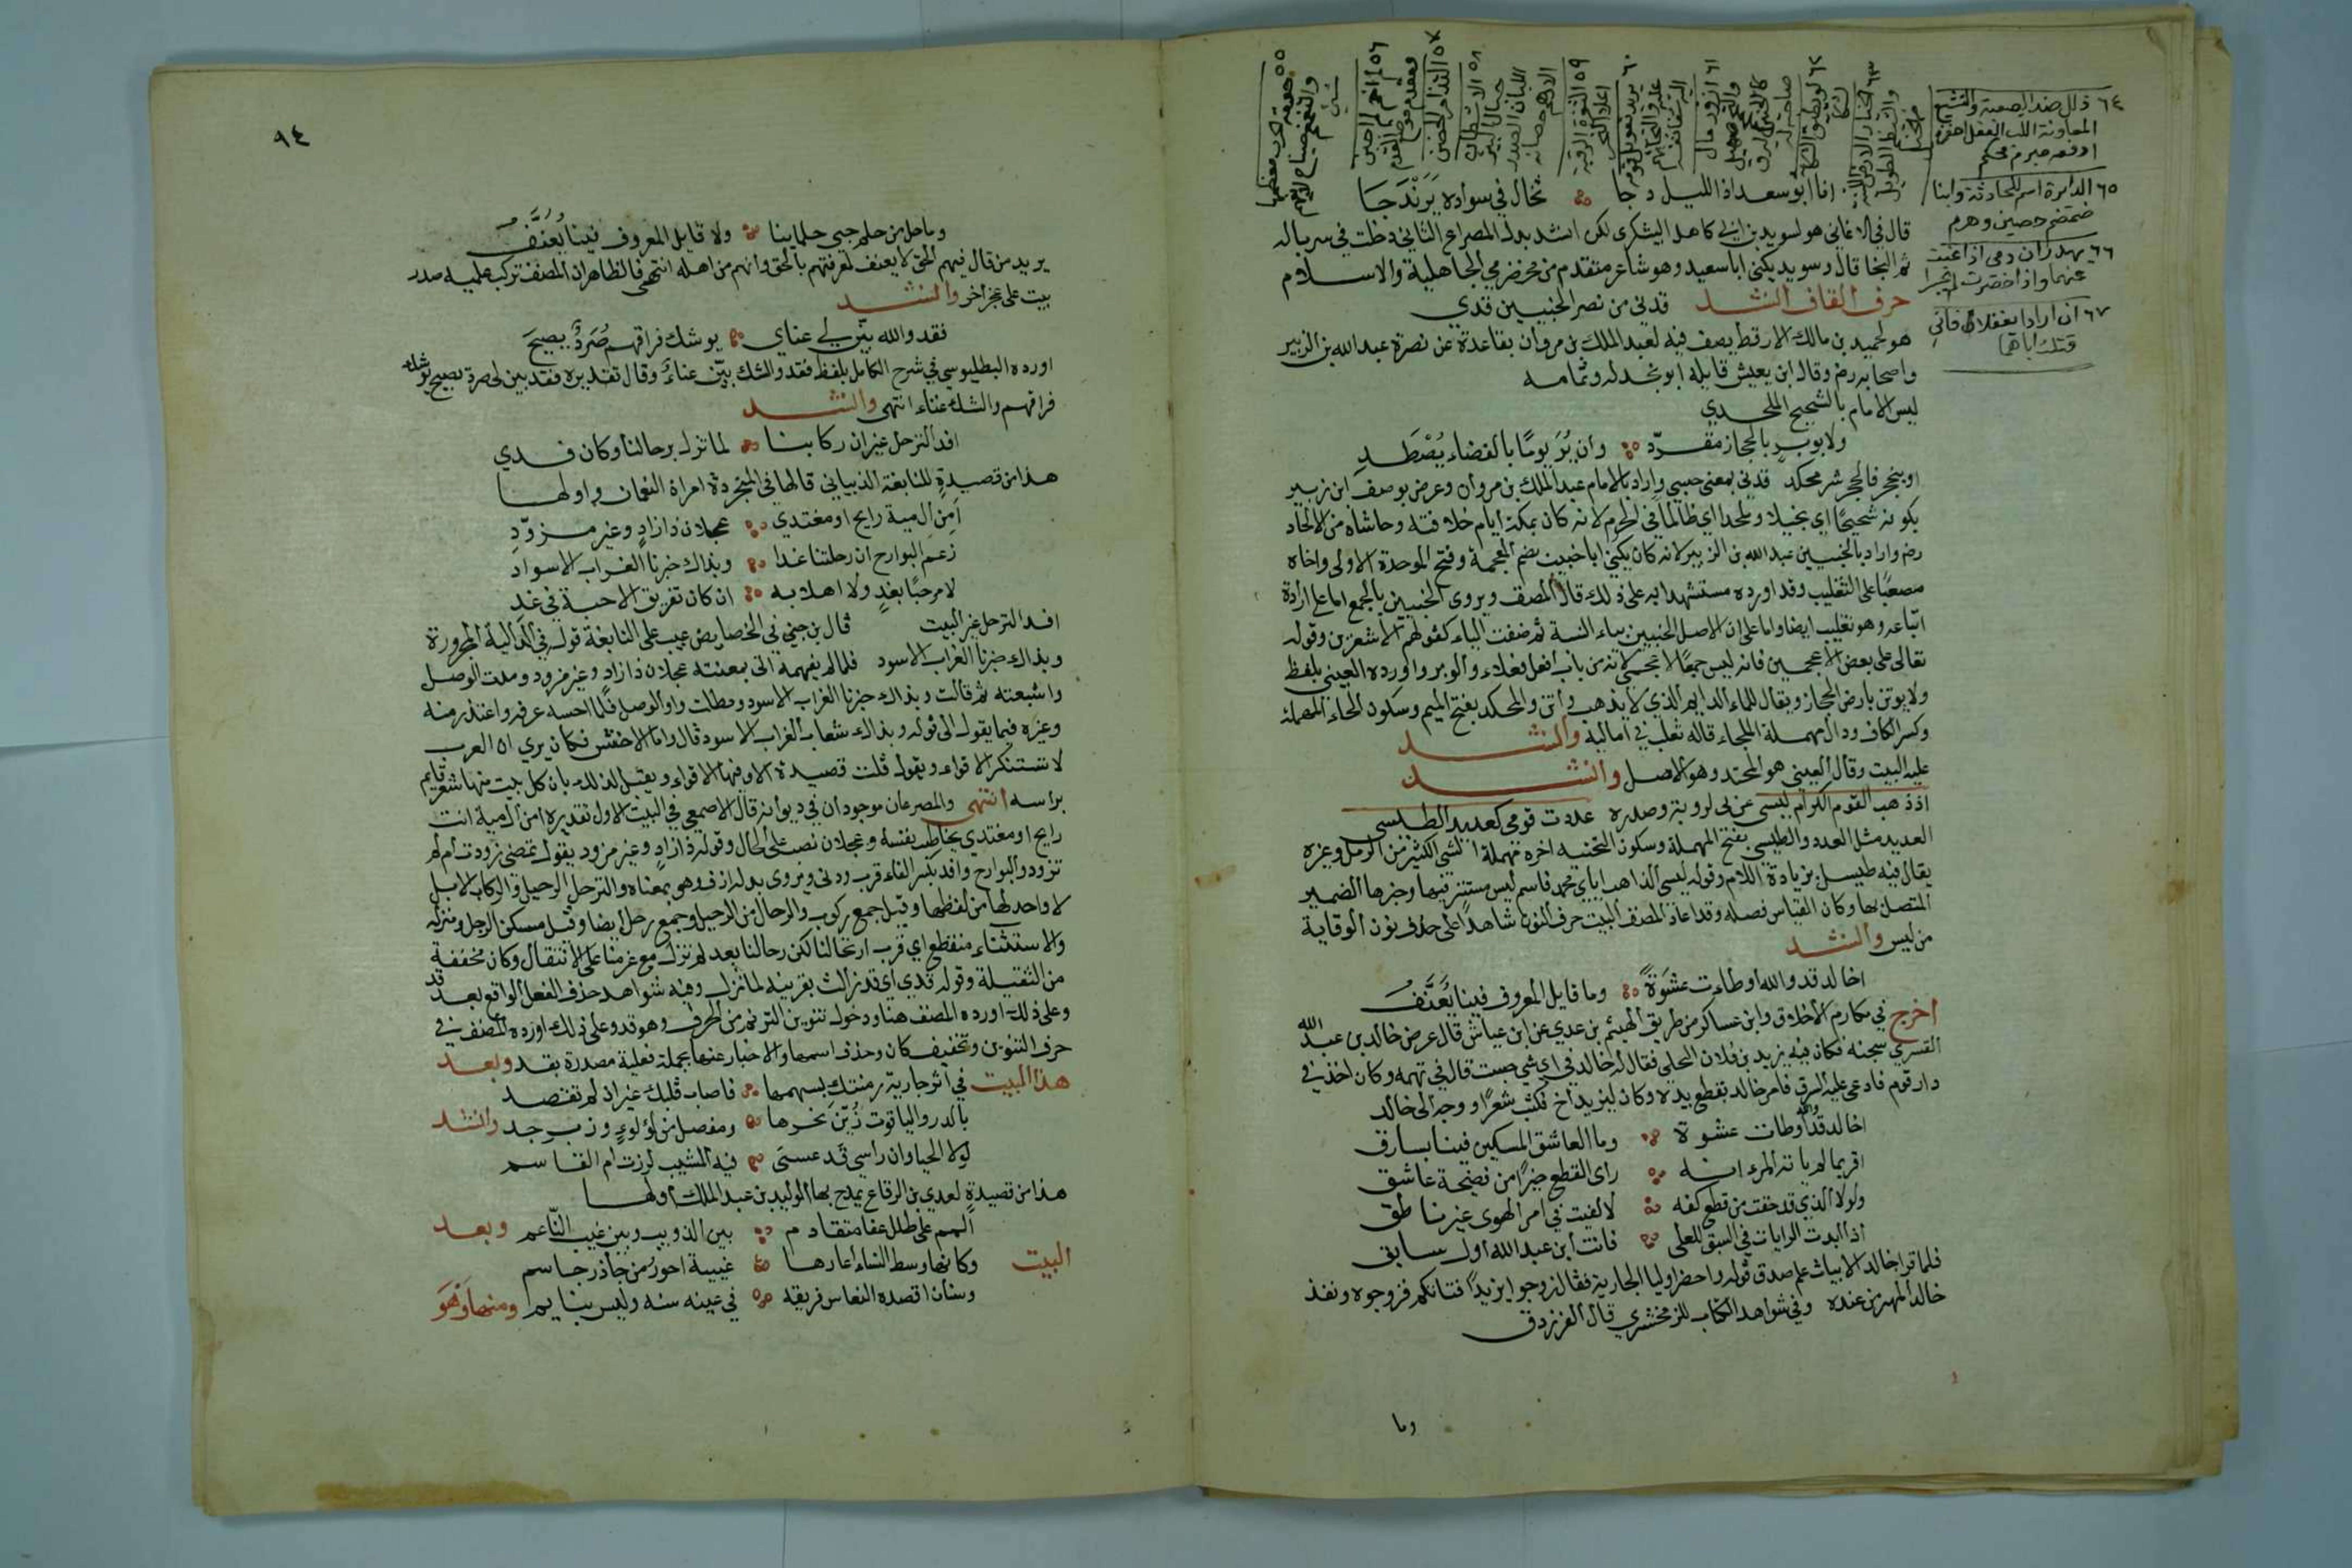 انا ابو سعد اذا الليل دجا ؞ تخال في سواده يَرَنْدَجَا
قال في الاغاني هو لسويد بن ابي كاهل اليشكري لكن انشد بدل المصراع الثاني دخلت في سرباله
ثم النجا قال وسويد يكنى اباسعيد وهو شاعر متقدم من مخضرمي الجاهلية والاسلام
حرف القاف انشد قدني من نصر الخبيبين قدي
هو لحميد بن مالك الارقط يصف فيه لعبد الملك بن مروان بقاعدة عن نصرة عبد الله بن الزبير
واصحابه رضم وقال ابن يعيش قايله ابو بحدله وتمامه
ليس الامام بالشحيح الملحدي
ولا بوبر بالحجاز مقرد ؞ وان يُرَ يومًا بالفضاء يُصْطَد
او ينجحر فالجحر شر محكد قدني بمعنى حسبي واراد بالامام عبد الملك بن مروان وعرض بوصف ابن زبير
بكونه شحيحًا اي بخيلا وملحدا اي ظالما في الحرم لانه كان بمكة ايام خلافته وحاشاه من الالحاد
رضم واراد بالخبيبين عبد الله بن الزبير لانه كان يكنى ابا خبيب بضم المعجمة وفتح الموحدة الاولى واخاه
مصعبًا على التغليب وقد اورده مستشهدا به على ذلك قال المصنف ويروى الخبيبين بالجمع اما على ارادة
اتباعه وهو تغليب ايضا واما على ان الاصل الخبيبيين بياء النسبة ثم خففت الياء كقولهم الاشعرين وقوله
تعالى على بعض الاعجمين فانه ليس جمعًا لاعجم لانه من باب افعل فعلاء والوبر واورده العيني بلفظ
ولا بوتن بارض الحجاز ويقال للماء الدايم الذي لا يذهب واتن والمحكد بفتح الميم وسكون الحاء المهملة
وكسر الكاف ودال مهملة الملجاء قاله ثعلب في اماليه وانشد
عليه البيت وقال العيني هو المحتد وهو الاصل وانشد
اذ ذهب القوم الكرام ليسي عزى لروبة وصدره عددت قومي كعديد الطيسي
العديد مثل العدد والطيس بفتح المهملة وسكون التحتيه اخره مهملة الشي الكثير من الرمل وغيره
يقال فيه طيسل بزيادة اللام وقوله ليسي الذاهب اياي محمد فاسم ليس مستتر فيها وخبرها الضمير
المتصل بها وكان القياس فصله وقد اعاد المصنف البيت حرف النون شاهدا على حذف نون الوقاية
من ليس وانشد
اخالد قد والله اوطاءت عشوة ؞ وما قايل المعروف فينا يُعَنَّفُ
اخرج في مكارم الاخلاق وابن عساكر من طريق الهيثم بن عدي عن ابن عياش قال عرض خالد بن عبد الله
القسري سجنه فكان فيه يزيد بن فلان البجلي فقال له خالد في اي شي حبست قال في تهمه وكان اخذ في
دار قوم فادعى عليه السرق فامر خالد بقطع يده وكان ليزيد اخ فكتب شعرًا ووجه الى خالد
اخالد قد والله اوطات عشوة ؞ وما العاشق المسكين فينا بسارق
اقر بما لم ياته المرء انه ؞ راى القطع خيرًا من فضيحة عاشق
ولولا الذي قد خفت من قطع كفه ؞ لالفيت في امر الهوى غير ناطق
اذا ابدت الرايات في السبق للعلى ؞ فانت ابن عبد الله اول سابق
فلما قرا خالد الابيات علم صدق قوله واحضر اوليا الجارية فقال زوجوا يزيدًا فتاتكم فزوجوه ونفذ
خالد المهر من عنده وفي شواهد الكتاب للزمخشري قال الفرزدق
وما
٦٤ ذلل ضد الصعبة
المعاونة اللب العقل
او قصر مبرم محكم
٦٥ الدايرة اسم للحادثة وابنا
ضمضم حصين وهرم
٦٦ يهدران دمي اذا غبت
عنهما واذا حضرت لم
٦٧ ان ارادا بفعلا فاني
قتلت اباهما
٩٤
وما حل من حلم حبي حلماينا ؞ ولا قايل المعروف فينا يُعَنَّفُ
يريد من قال فيهم الحق لا يعنف لمعرفتهم بالحق وانهم من اهله انتهى فالظاهر ان المصنف تركب عليه صدر
بيت على عجز اخر وانشد
فقد والله بيّن لي عناي ؞ بوشك فراقهم صُرَدٌ يصيح
اورده البطليوسي في شرح الكامل بلفظ فقد والشك بيّن عناءٌ وقال تقديره فقد بين لي صرد يصيح بوشك
فراقهم والشك عناء انتهى وانشد
افد الترحل غير ان ركابنا ؞ لما تزل برحالنا وكان قدي
هذا من قصيدة للنابغة الذبياني قالها في المتجردة امراة النعمان واولها
امن ال مية رايح او مغتدي ؞ عجلان ذا زاد وغير مزوّد
زعم البوارح ان رحلتنا غدا ؞ وبذاك خبرنا الغراب الاسود
لا مرحبًا بغد ولا اهلا به ؞ ان كان تفريق الاحبة في غد
افد الترحل غير البيت قال بن جني في الخصايص عيب على النابغة قوله في الدالية المجرورة
وبذاك خبرنا الغراب الاسود فلما لم يفهمه اتى بمغنية عجلان ذا زاد وغير مزود ومدت الوصل
واشبعته ثم قالت وبذاك خبرنا الغراب الاسود ومطلت واو الوصل فلما احسه عرفه واعتذر منه
وغيره فيما يقول الى قوله وبذاك تنعاب الغراب الاسود قال واما الاخفش فكان يرى ان العرب
لا تستنكر الاقواء ويقول قلت قصيدة الا وفيها الاقواء ويعتل لذلك بان كل بيت منها شعر قايم
براسه انتهى والمصرعان موجودان في ديوانه قال الاصمعي في البيت الاول تقديره امن ال مية انت
رايح او مغتدي يخاطب نفسه وعجلان نصب على الحال وقوله ذا زاد وغير مزود يقول تمضي تزودت ام لم
تزود والبوارح وافد بكسر الفاء قرب ودنى ويروى بدله ازف وهو بمعناه والترحل الرحيل والركاب الابل
لا واحد لها من لفظها وقيل جمع ركوب والرحال من الرحيل وجمع رحل ايضا وقيل مسكن الرجل ومنزله
والاستثناء منقطع اي قرب ارتحالنا لكن رحالنا بعد لم تزل مع عزمنا على الانتقال وكان مخففة
من الثقيلة وقوله قدي اي قد زالت بقرينة لما تزل وفيه شواهد حذف الفعل الواقع بعد قد
وعلى ذلك اورده المصنف هنا ودخول تنوين الترنم من الحرف وهو قد وعلى ذلك اورده المصنف في
حرف التنوين وتخفيف كان وحذف اسمها والاخبار عنها بجملة فعلية مصدرة بقد وبعد
هذا البيت في اثر جارية رمتك بسهمها ؞ فاصاب قلبك غير ان لم تقصد
بالدر والياقوت زُيّن نحرها ؞ ومفصل من لؤلوء وزبرجد وانشد
لولا الحيا وان راسي قد عسى ؞ فيه المشيب لزرت ام القاسم
هذا من قصيدة لعدي بن الرقاع يمدح بها الوليد بن عبد الملك اولها
المم على طلل عفا متقادم ؞ بين الذويب وبين غيب الناعم وبعد
البيت وكانها وسط النساء اعارها ؞ عينيه احور من جاذر جاسم
وسنان اقصده النعاس فرنقه ؞ في عينه سنه وليس بنايم ومنها وَهَو